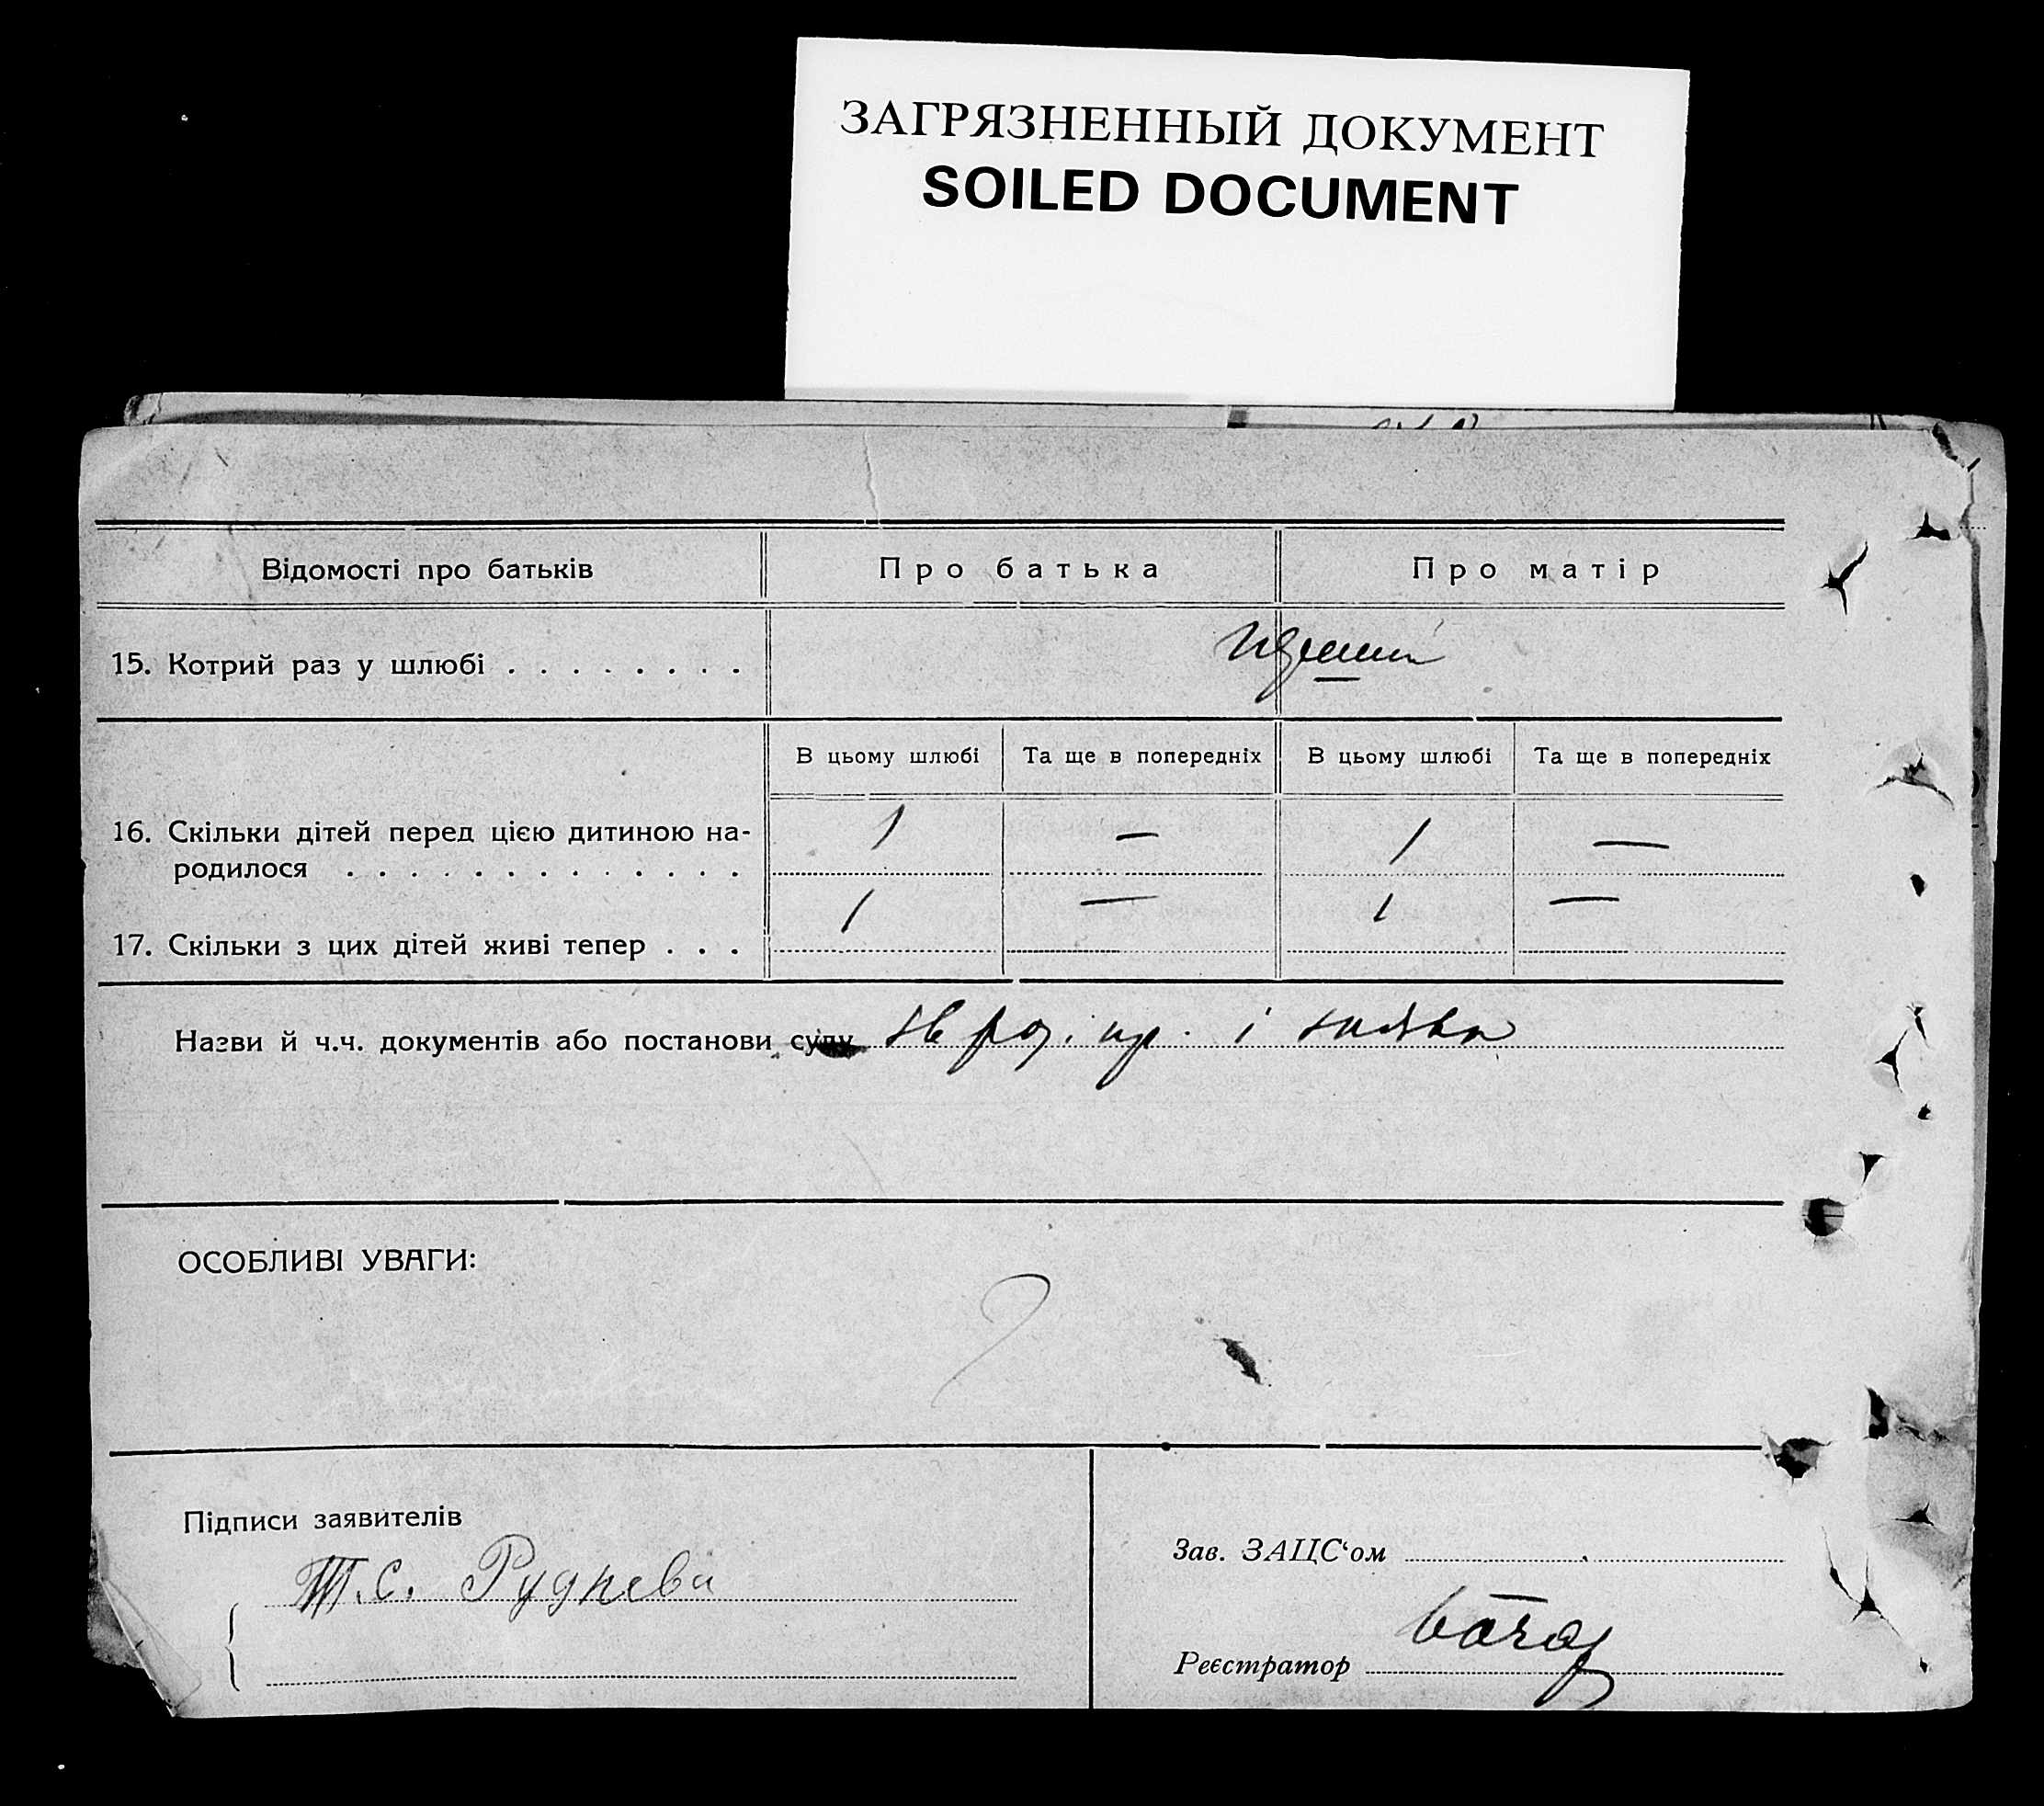 ЗАГРЯЗНЕННЫЙ ДОКУМЕНТ
SOILED DOCUMENT
Відомості про батьків Про батька Про матір
15. Котрий раз у шлюбі . . . . . . . .
В цьому шлюбі Та ще в попередніх В цьому шлюбі Та ще в попередніх
16. Скільки дітей перед цією дитиною на- 1 — 1 —
родилося . . . . . . . . . . . . .
17. Скільки з цих дітей живі тепер . . . 1 — 1 —
Назви й ч.ч. документів або постанови суду і заява
ОСОБЛИВІ УВАГИ:
Підписи заявителів
Т.С. Руднева
Зав. ЗАЦС‘ом
Реєстратор